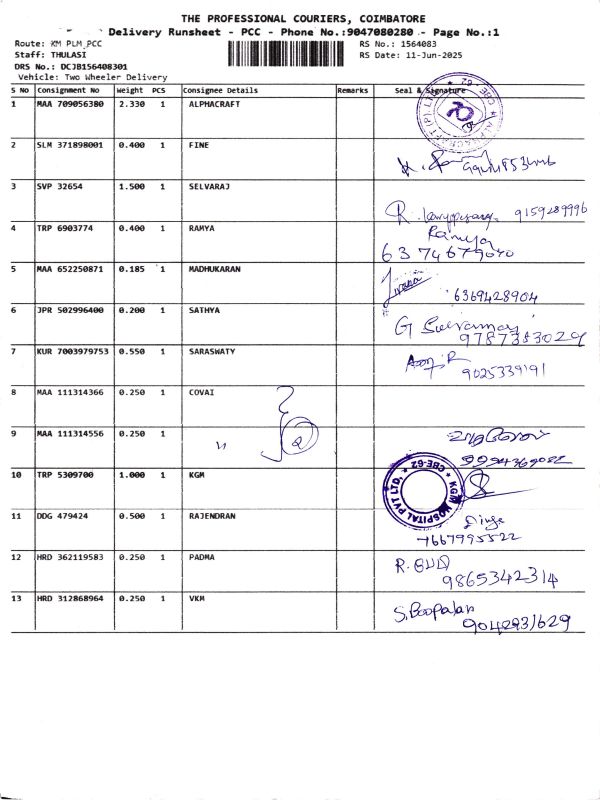 THE PROFESSIONAL COURIERS, COIMBATORE
Delivery Runsheet - PCC - Phone No.:9047080280 - Page No.:1
Route: KM PLM_PCC RS No.: 1564083
Staff: THULASI RS Date: 11-Jun-2025
DRS No.: DCJB156408301
Vehicle: Two Wheeler Delivery
S No Consignment No Weight PCS Consignee Details Remarks Seal & Signature
1 MAA 709056380 2.330 1 ALPHACRAFT
ALPHACRAFT (P) LTD. * CBE-62 *
2 SLM 371898001 0.400 1 FINE
3 SVP 32654 1.500 1 SELVARAJ
R. 9159289996
4 TRP 6903774 0.400 1 RAMYA Ramya
6374679040
5 MAA 652250871 0.185 1 MADHUKARAN
6369428904
6 JPR 502996400 0.200 1 SATHYA G
9787383029
7 KUR 7003979753 0.550 1 SARASWATY
9025339191
8 MAA 111314366 0.250 1 COVAI
9 MAA 111314556 0.250 1 "
9994369082
10 TRP 5309700 1.000 1 KGM
KGM HOSPITAL PVT LTD. * CBE-62 *
11 DDG 479424 0.500 1 RAJENDRAN
7667995522
12 HRD 362119583 0.250 1 PADMA R.
9865342314
13 HRD 312868964 0.250 1 VKM S. Boopalan
9042931629